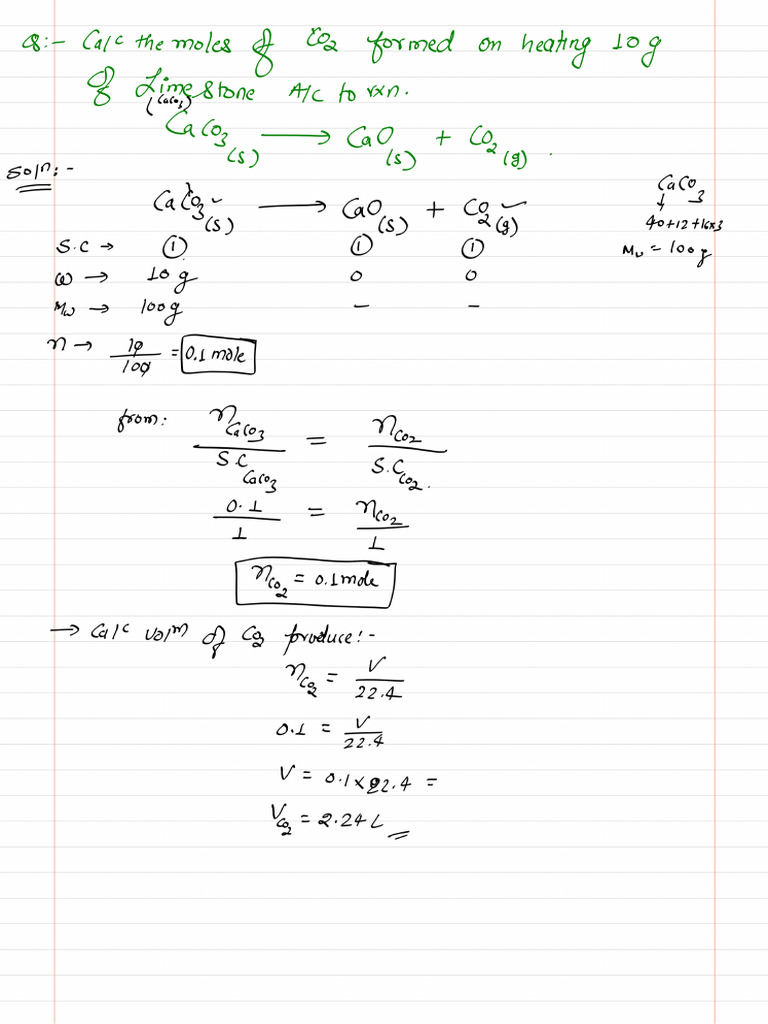 Q:- Calc the moles of CO2 formed on heating 10g
of Lime stone A/C to rxn.
(CaCO3)
CaCO3(s) ⟶ CaO(s) + CO2(g).
Soln:-
CaCO3(s) ⟶ CaO(s) + CO2(g)
CaCO3
↓
40+12+16×3
Mw = 100g
S.C → ① ① ①
ω → 10g 0 0
Mw → 100g – –
n → 10/100 = 0.1 mole
from: nCaCO3/S.C CaCO3 = nCO2/S.C CO2.
0.1/1 = nCO2/1
nCO2 = 0.1 mole
→ Calc volm of CO2 produce:-
nCO2 = V/22.4
0.1 = V/22.4
V = 0.1×22.4 =
VCO2 = 2.24L